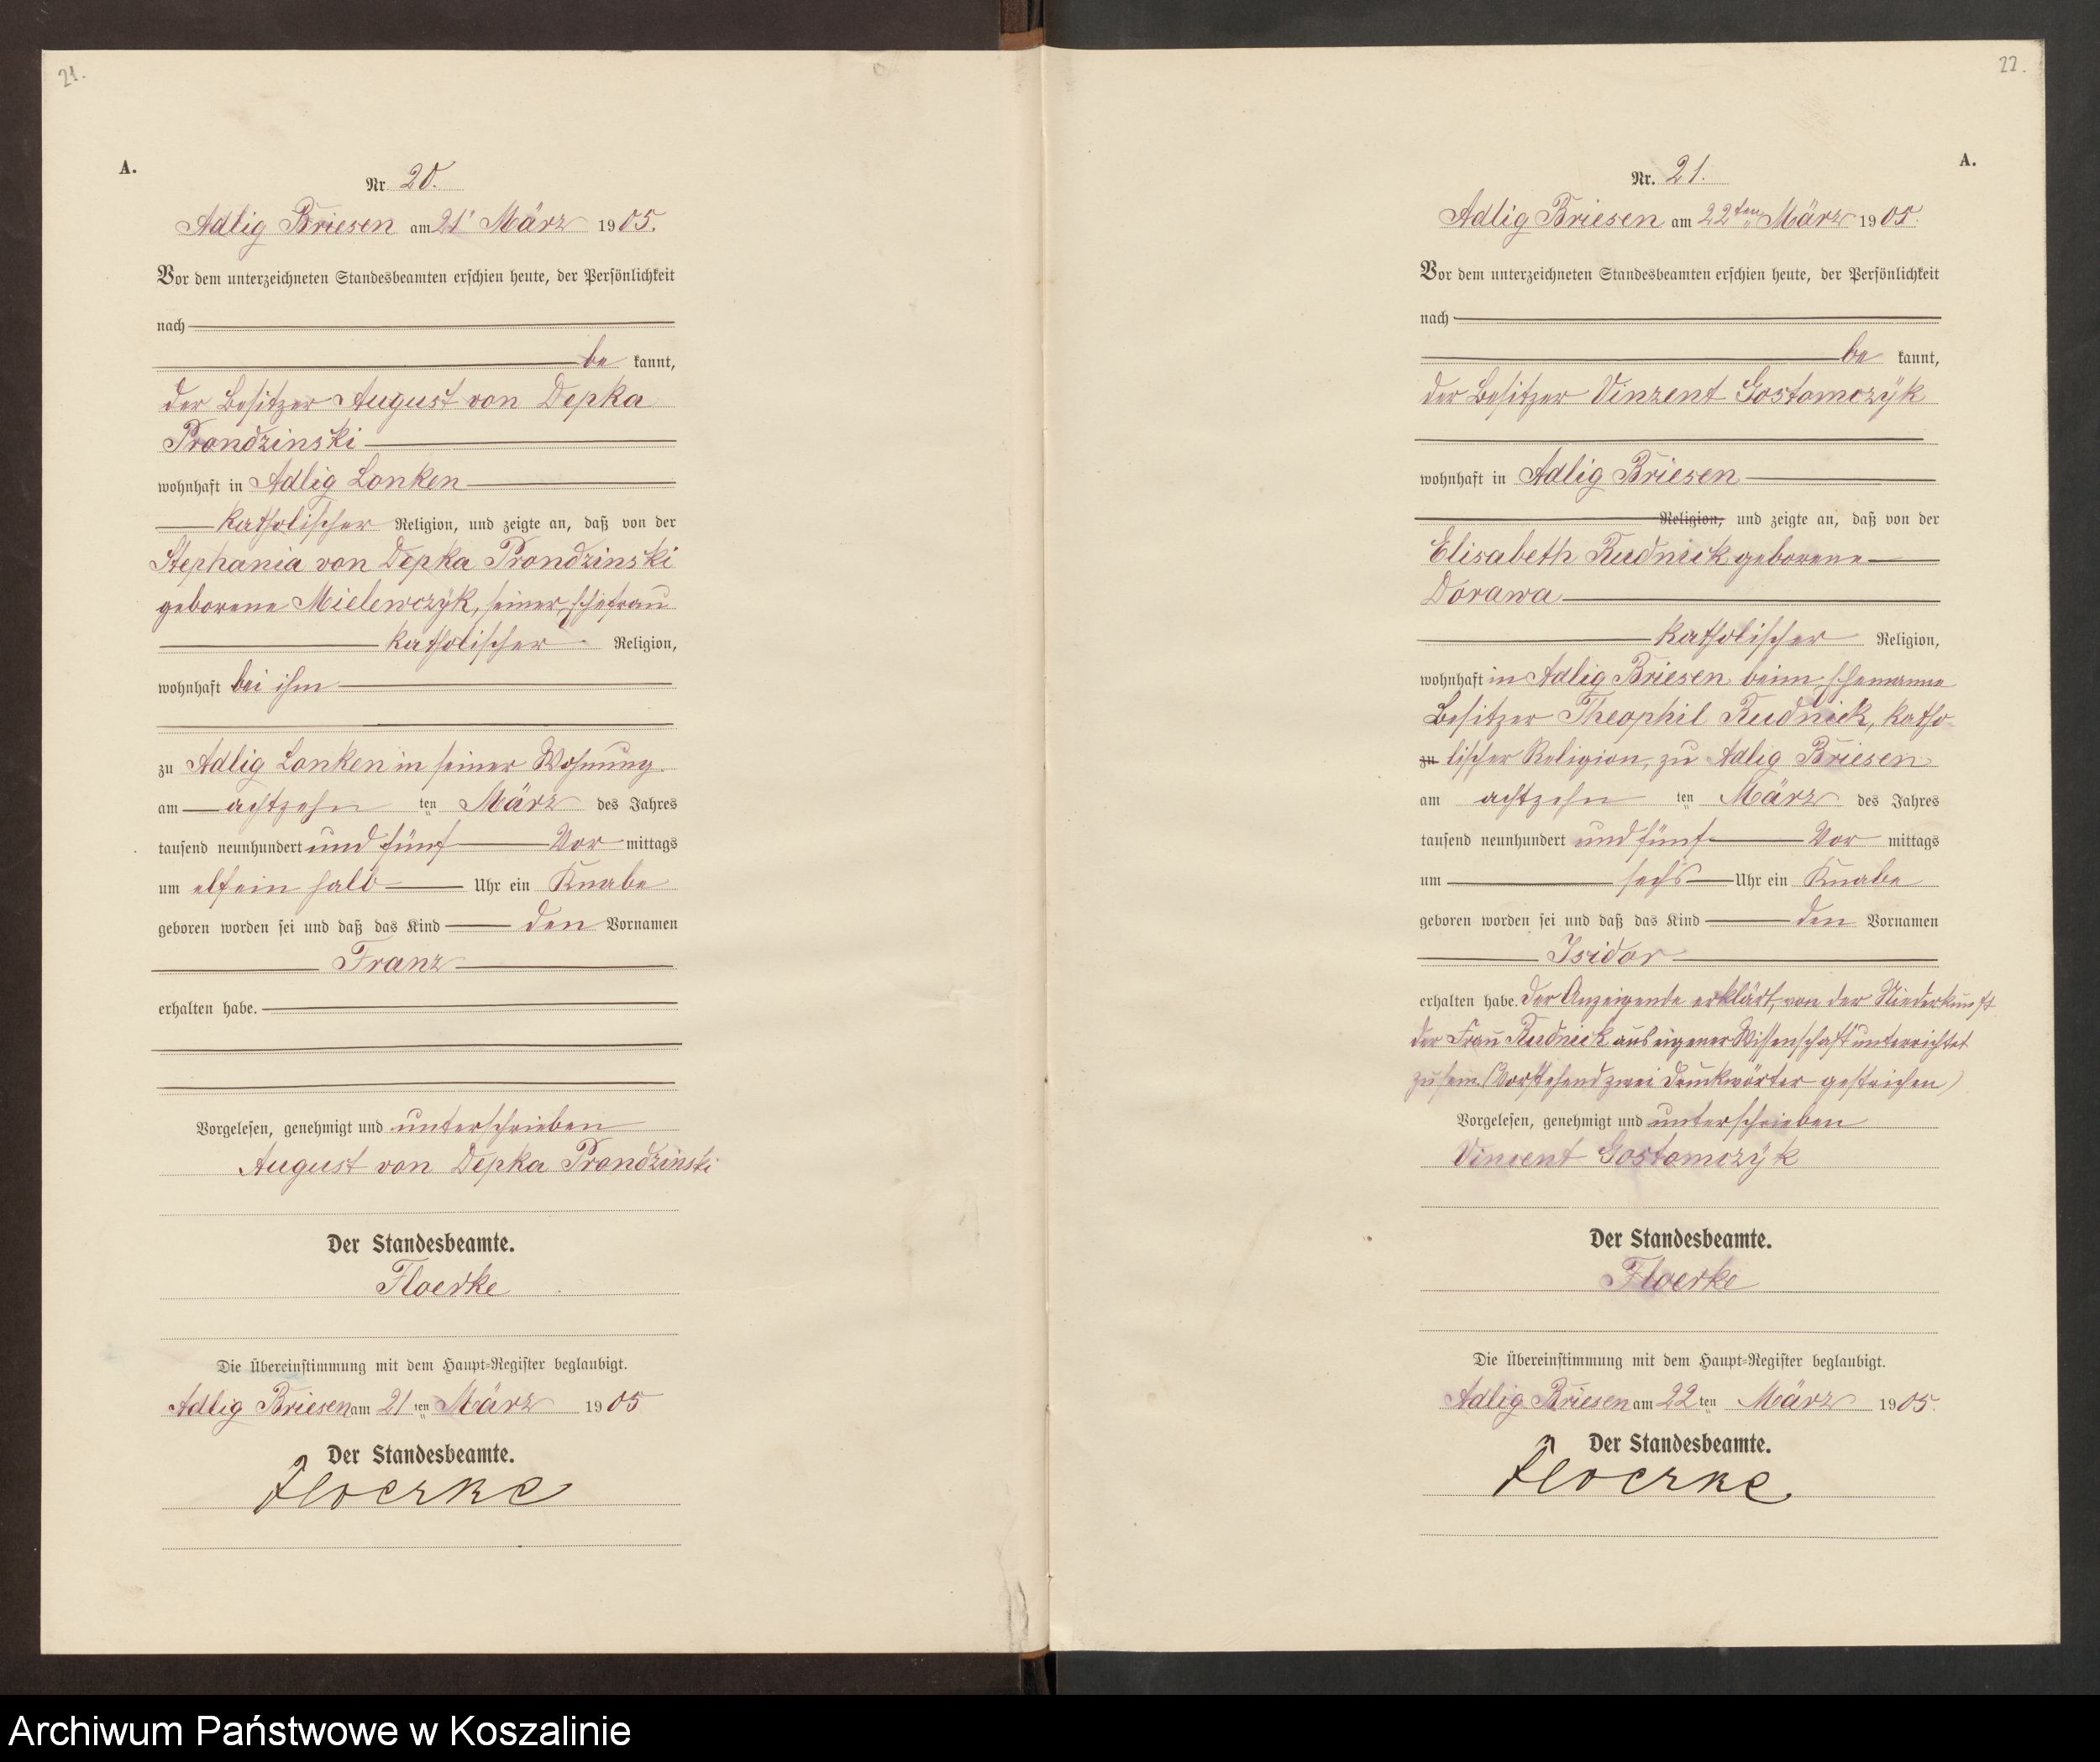 21.
A.
Nr. 20.
Adlig Briesen am 21t März 1905.
Vor dem unterzeichneten Standesbeamten erschien heute, der Persönlichkeit
nach
be kannt,
der Besitzer August von Depka
Prondzinski
wohnhaft in Adlig Lonken
katholischer Religion, und zeigte an, daß von der
Stephania von Depka Prondzinski
geborene Mielewczÿk, seiner Ehefrau
katholischer Religion,
wohnhaft bei ihm
zu Adlig Lonken in seiner Wohnung
am achtzehn ten März des Jahres
tausend neunhundert und fünf Vor mittags
um elfein halb Uhr ein Knabe
geboren worden sei und daß das Kind den Vornamen
Franz
erhalten habe.
Vorgelesen, genehmigt und unterschrieben
August von Depka Prondzinski
Der Standesbeamte.
Floerke
Die Übereinstimmung mit dem Haupt-Register beglaubigt.
Adlig Briesen am 21 ten März 1905
Der Standesbeamte.
Floerke
22.
A.
Nr. 21.
Adlig Briesen am 22ten März 1905.
Vor dem unterzeichneten Standesbeamten erschien heute, der Persönlichkeit
nach
be kannt,
der Besitzer Vinzent Gostomczÿk
wohnhaft in Adlig Briesen
Religion, und zeigte an, daß von der
Elisabeth Rudnick geborene
Dorawa
katholischer Religion,
wohnhaft in Adlig Briesen beim Ehemanne
Besitzer Theophil Rudnick, katho-
zu lischer Religion, zu Adlig Briesen
am achtzehn ten März des Jahres
tausend neunhundert und fünf Vor mittags
um sechs Uhr ein Knabe
geboren worden sei und daß das Kind den Vornamen
Isidor
erhalten habe. Der Anzeigende erklärt, von der Niederkunft
der Frau Rudnick aus eigener Wissenschaft unterrichtet
zu sein. (Vorstehend zwei Druckwörter gestrichen)
Vorgelesen, genehmigt und unterschrieben
Vincent Gostomczÿk
Der Standesbeamte.
Floerke
Die Übereinstimmung mit dem Haupt-Register beglaubigt.
Adlig Briesen am 22 ten März 1905.
Der Standesbeamte.
Floerke
Archiwum Państwowe w Koszalinie